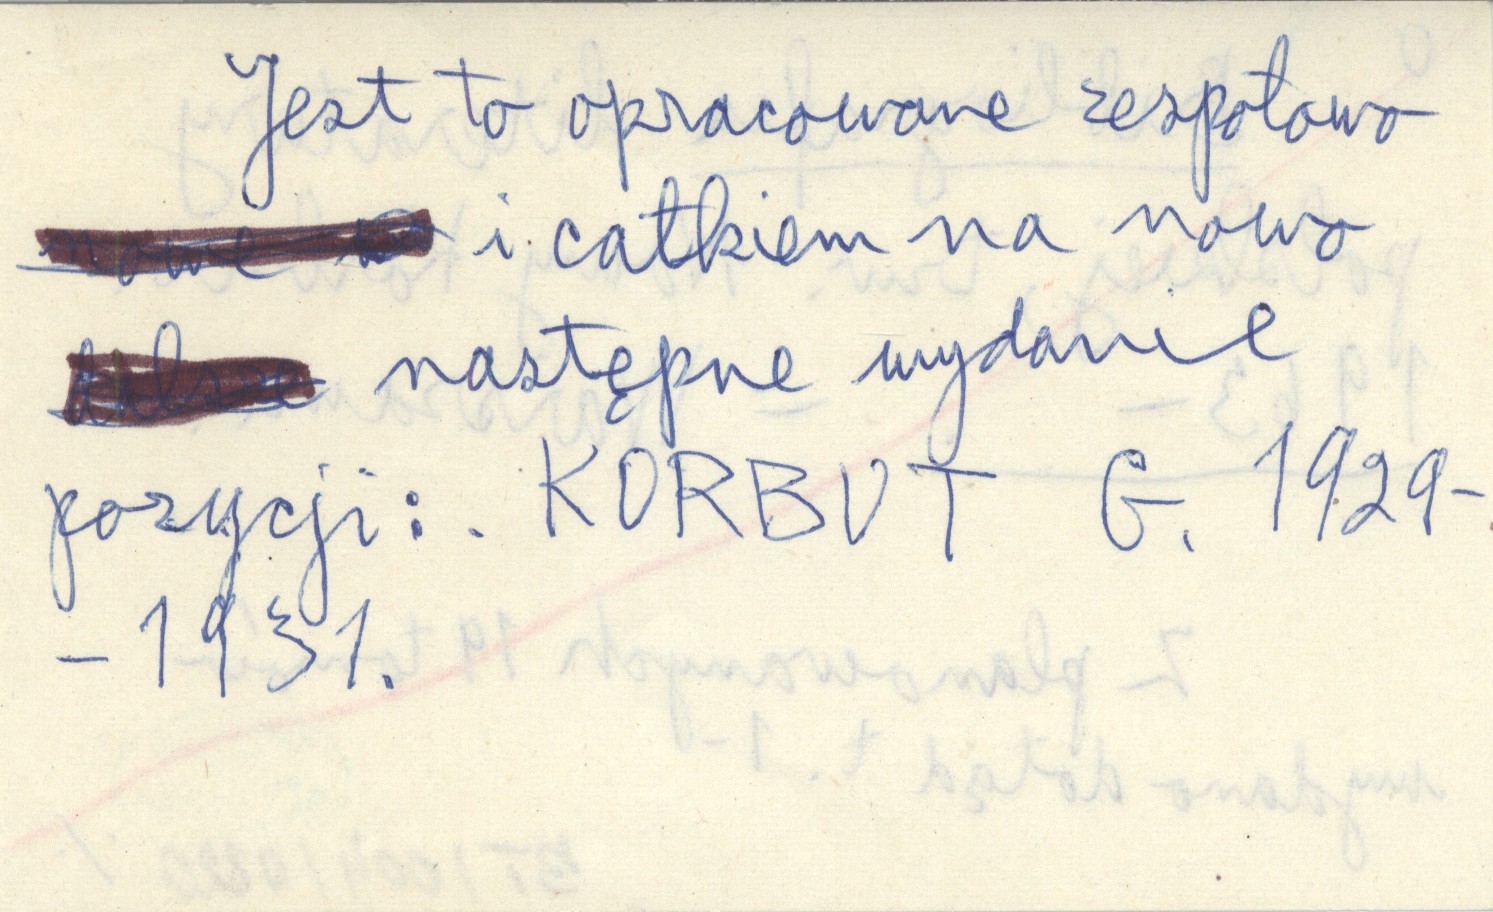 Jest to opracowane zespołowo
i całkiem na nowo
następne wydanie
pozycji: . KORBUT G. 1929-
- 1931.